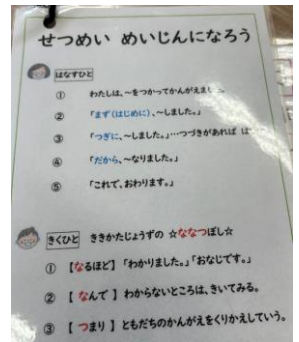 せつめい めいじんになろう
はなすひと
① わたしは、~をつかってかんがえまし
② 「まず(はじめに)、~しました。」
③ 「つぎに、~しました。」…つづきがあれば
④ 「だから、~なりました。」
⑤ 「これで、おわります。」
きくひと ききかたじょうずの ☆ななつぼし☆
① 【なるほど】 「わかりました。」「おなじです。」
② 【 なんで 】 わからないところは、きいてみる。
③ 【 つまり 】 ともだちのかんがえをくりかえしていう。